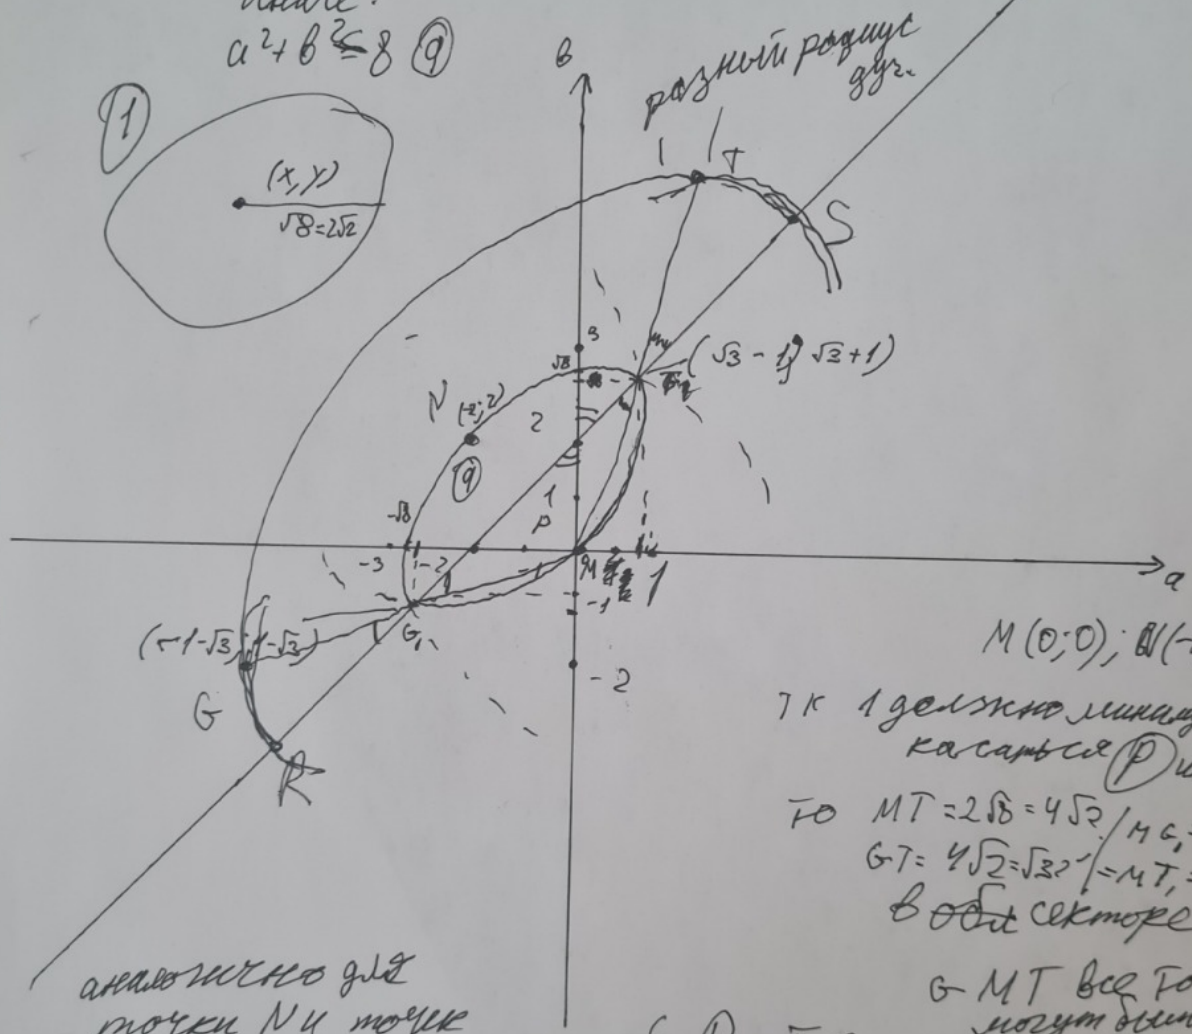 иначе:
a²+b²≤8 ⓠ
①
(x, y)
√8=2√2
b
разный радиус
дуг.
T
S
3
√8
(√3-1; √3+1)
N (-2; 2)
2
ⓠ
1
-√8
p
-3
-2
-1
M
1
a
-1
(-1-√3; 1-√3)
G₁
-2
G
R
M(0;0); N(-
тк 1 должно
касаться Ⓟ и
то MT=2√8=4√2 / MG₁
GT= 4√2=√32 / =MT₁=
в секторе
G MT все то
могут быть
аналогично для
точки N и точек